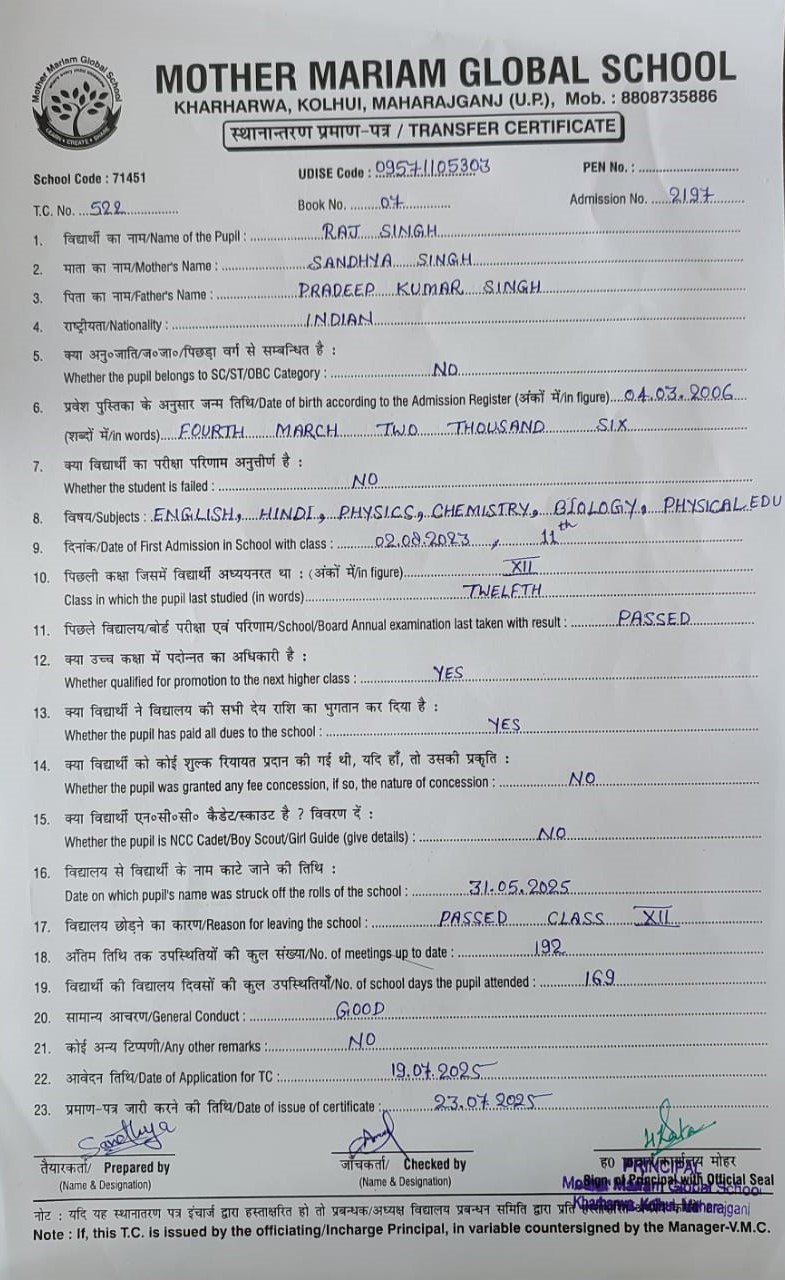 Mother Mariam Global School
LEARN • CREATE • SHARE
MOTHER MARIAM GLOBAL SCHOOL
KHARHARWA, KOLHUI, MAHARAJGANJ (U.P.), Mob. : 8808735886
स्थानान्तरण प्रमाण-पत्र / TRANSFER CERTIFICATE
School Code : 71451 UDISE Code : 09571105303 PEN No. :
T.C. No. 522 Book No. 07 Admission No. 2197
1. विद्यार्थी का नाम/Name of the Pupil : RAJ SINGH
2. माता का नाम/Mother's Name : SANDHYA SINGH
3. पिता का नाम/Father's Name : PRADEEP KUMAR SINGH
4. राष्ट्रीयता/Nationality : INDIAN
5. क्या अनु०जाति/ज०जा०/पिछड़ा वर्ग से सम्बन्धित है :
Whether the pupil belongs to SC/ST/OBC Category : NO
6. प्रवेश पुस्तिका के अनुसार जन्म तिथि/Date of birth according to the Admission Register (अंकों में/in figure) 04.03.2006
(शब्दों में/in words) FOURTH MARCH TWO THOUSAND SIX
7. क्या विद्यार्थी का परीक्षा परिणाम अनुत्तीर्ण है :
Whether the student is failed : NO
8. विषय/Subjects : ENGLISH, HINDI, PHYSICS, CHEMISTRY, BIOLOGY, PHYSICAL EDU
9. दिनांक/Date of First Admission in School with class : 02.08.2023, 11th
10. पिछली कक्षा जिसमें विद्यार्थी अध्ययनरत था : (अंकों में/in figure) XII
Class in which the pupil last studied (in words) TWELFTH
11. पिछले विद्यालय/बोर्ड परीक्षा एवं परिणाम/School/Board Annual examination last taken with result : PASSED
12. क्या उच्च कक्षा में पदोन्नत का अधिकारी है :
Whether qualified for promotion to the next higher class : YES
13. क्या विद्यार्थी ने विद्यालय की सभी देय राशि का भुगतान कर दिया है :
Whether the pupil has paid all dues to the school : YES
14. क्या विद्यार्थी को कोई शुल्क रियायत प्रदान की गई थी, यदि हाँ, तो उसकी प्रकृति :
Whether the pupil was granted any fee concession, if so, the nature of concession : NO
15. क्या विद्यार्थी एन०सी०सी० कैडेट/स्काउट है ? विवरण दें :
Whether the pupil is NCC Cadet/Boy Scout/Girl Guide (give details) : NO
16. विद्यालय से विद्यार्थी के नाम काटे जाने की तिथि :
Date on which pupil's name was struck off the rolls of the school : 31.05.2025
17. विद्यालय छोड़ने का कारण/Reason for leaving the school : PASSED CLASS XII
18. अंतिम तिथि तक उपस्थितियों की कुल संख्या/No. of meetings up to date : 192
19. विद्यार्थी की विद्यालय दिवसों की कुल उपस्थितियाँ/No. of school days the pupil attended : 169
20. सामान्य आचरण/General Conduct : GOOD
21. कोई अन्य टिप्पणी/Any other remarks : NO
22. आवेदन तिथि/Date of Application for TC : 19.07.2025
23. प्रमाण-पत्र जारी करने की तिथि/Date of issue of certificate : 23.07.2025
Sandhya
तैयारकर्ता/ Prepared by जाँचकर्ता/ Checked by ह० मोहर
PRINCIPAL
(Name & Designation) (Name & Designation) Sign of Principal with Official Seal
Mother Mariam Global School
Kharharwa, Kolhui, Maharajganj
नोट : यदि यह स्थानातरण पत्र इंचार्ज द्वारा हस्ताक्षरित हो तो प्रबन्धक/अध्यक्ष विद्यालय प्रबन्धन समिति द्वारा प्रति
Note : If, this T.C. is issued by the officiating/Incharge Principal, in variable countersigned by the Manager-V.M.C.